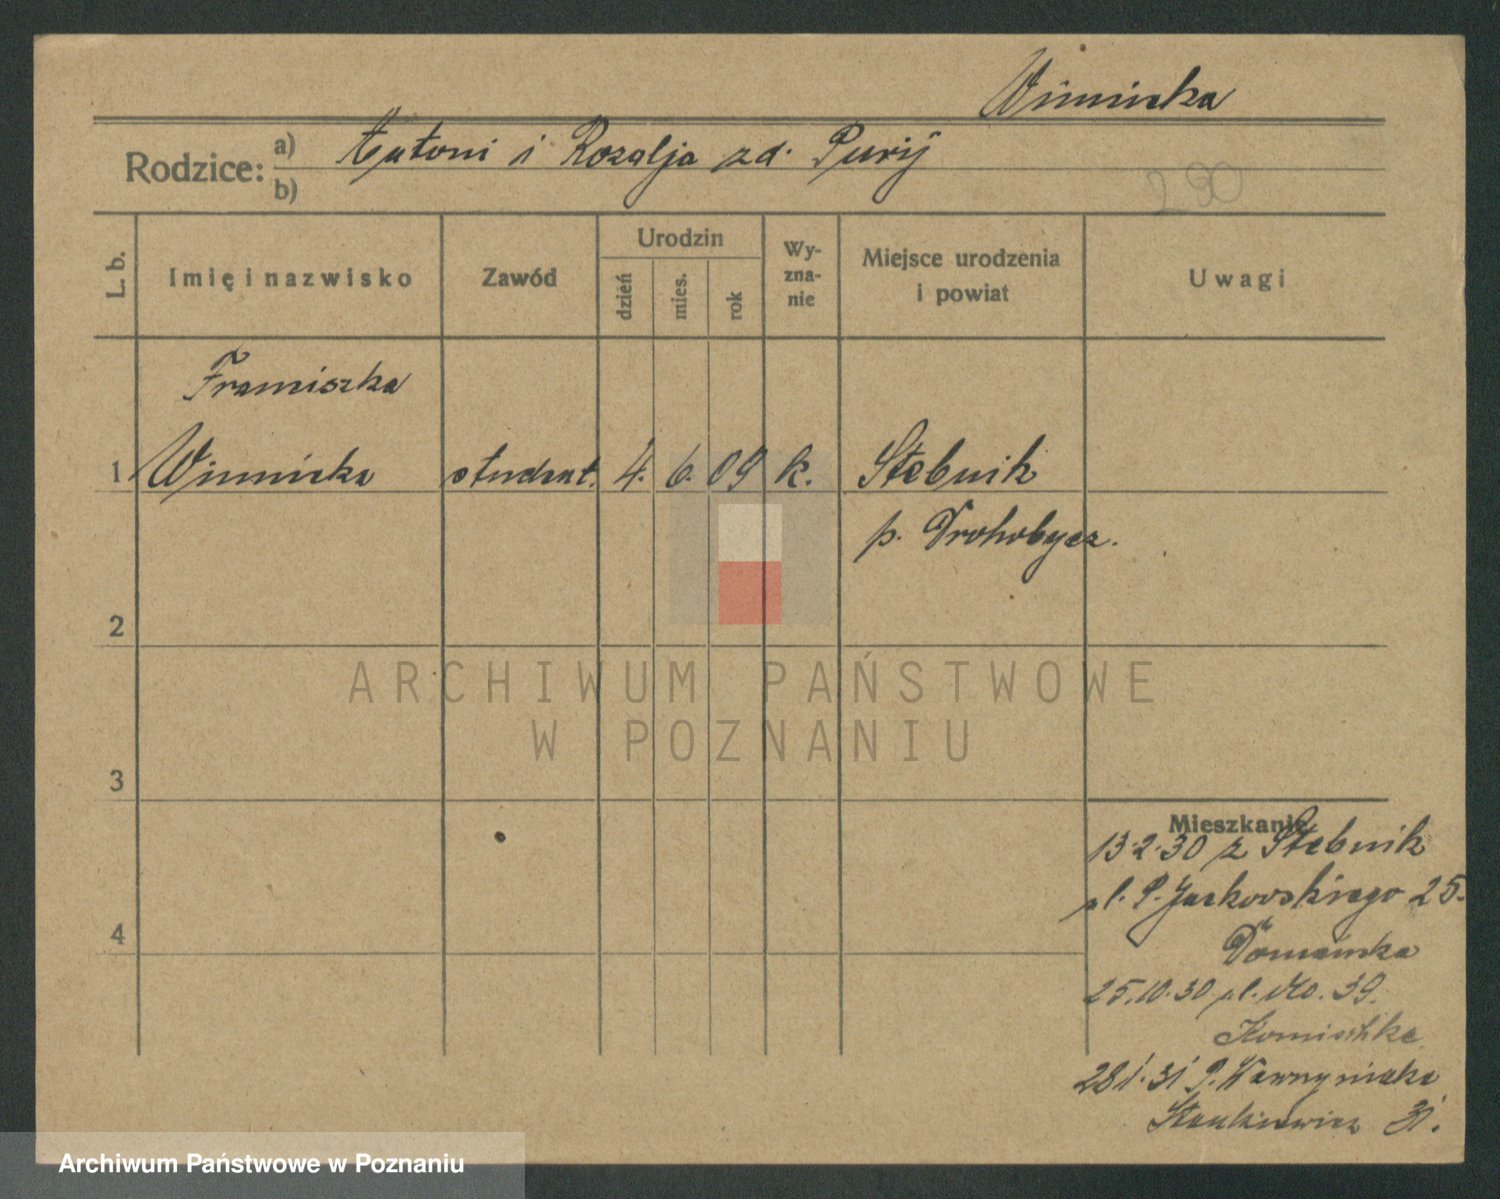 Winnicka
Rodzice: a) Antoni i Rozalja zd. Puryj
b)
290
L. b.
Imię i nazwisko
Zawód
Urodzin
dzień
mies.
rok
Wy-
zna-
nie
Miejsce urodzenia
i powiat
Uwagi
Franciszka
1 Winnicka student. 4. 6. 09 k. Stebnik
p. Drohobycz.
2
3
4
Mieszkanie
13.2.30 z Stebnik
ul. P. Jackowskiego 25.
25.10.30 ul. 39.
28.1.31 P. Wawrzyniaka
Stankiewicz 31.
ARCHIWUM PAŃSTWOWE
W POZNANIU
Archiwum Państwowe w Poznaniu